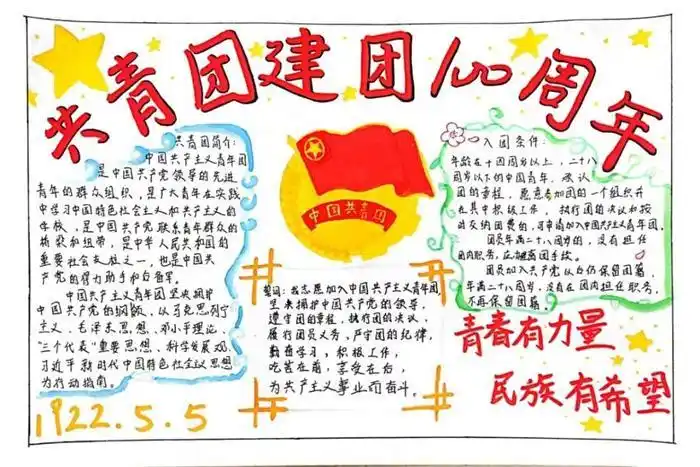 共青团建团100周年
共青团简介:
中国共产主义青年团
是中国共产党领导的先进
青年的群众组织,是广大青年在实践
中学习中国特色社会主义和共产主义的
学校,是中国共产党联系青年群众的
桥梁和纽带,是中华人民共和国的
重要社会支柱之一,也是中国共
产党的得力助手和后备军。
中国共产主义青年团坚决拥护
中国共产党的纲领,以马克思列宁
主义、毛泽东思想、邓小平理论、
"三个代表"重要思想、科学发展观、
习近平新时代中国特色社会主义思想
为行动指南。
1922.5.5
中国共青团
誓词:我志愿加入中国共产主义青年团,
坚决拥护中国共产党的领导,
遵守团的章程,执行团的决议,
履行团员义务,严守团的纪律,
勤奋学习,积极工作,
吃苦在前,享受在后,
为共产主义事业而奋斗。
入团条件:
年龄在十四周岁以上,二十八
周岁以下的中国青年,承认
团的章程,愿意参加团的一个组织并
在其中积极工作,执行团的决议和按
时交纳团费的,可申请加入中国共产主义青年团。
团员年满二十八周岁的,没有担任
团内职务,应该离团手续。
团员加入共产党以后仍保留团籍,
年满二十八周岁,没有在团内担任职务,
不再保留团籍。
青春有力量
民族有希望